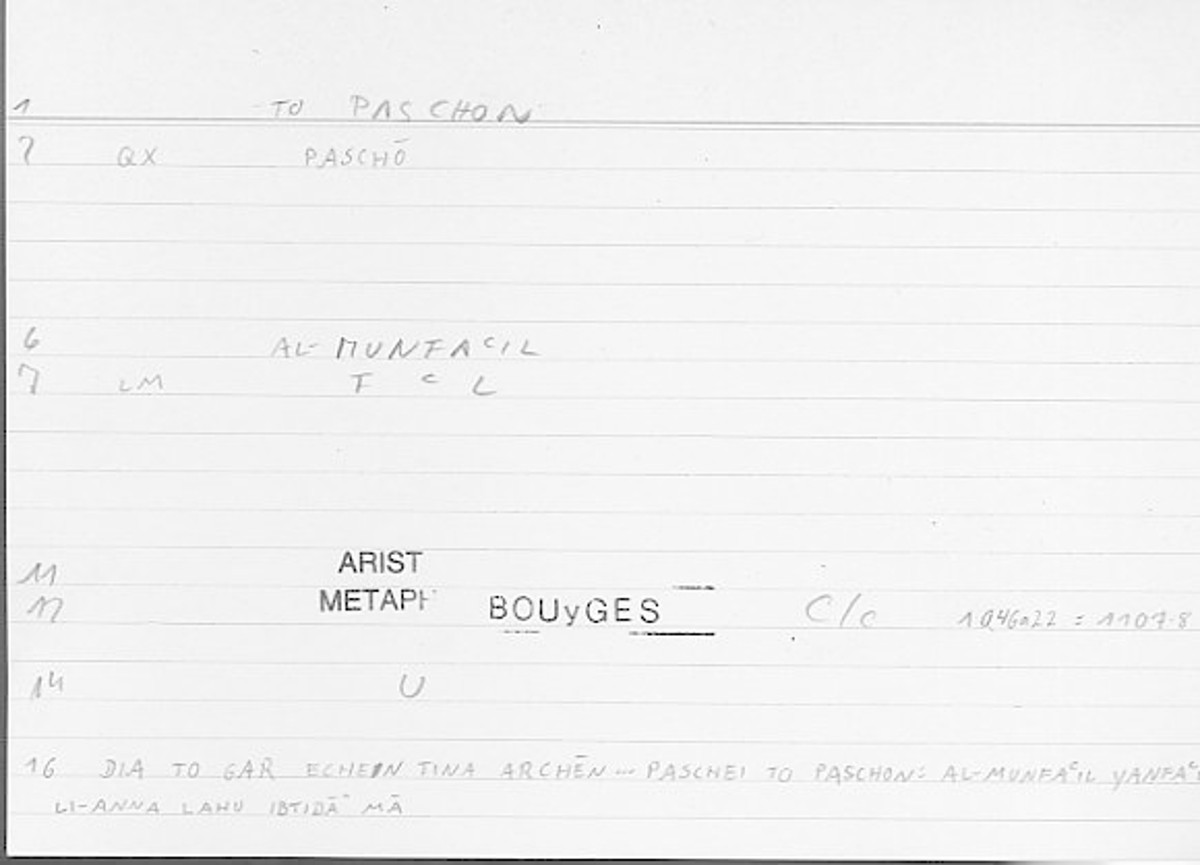 1 TO PASCHON
2 QX PASCHŌ
6 AL-MUNFAᶜIL
7 LM F ᶜ L
11 ARIST
12 METAPH BOUyGES C/c 1046a22 : 1107.8
14 U
16 DIA TO GAR ECHEIN TINA ARCHĒN... PASCHEI TO PASCHON: AL-MUNFAᶜIL YANFAᶜI
LI-ANNA LAHU IBTIDĀʾ MĀ